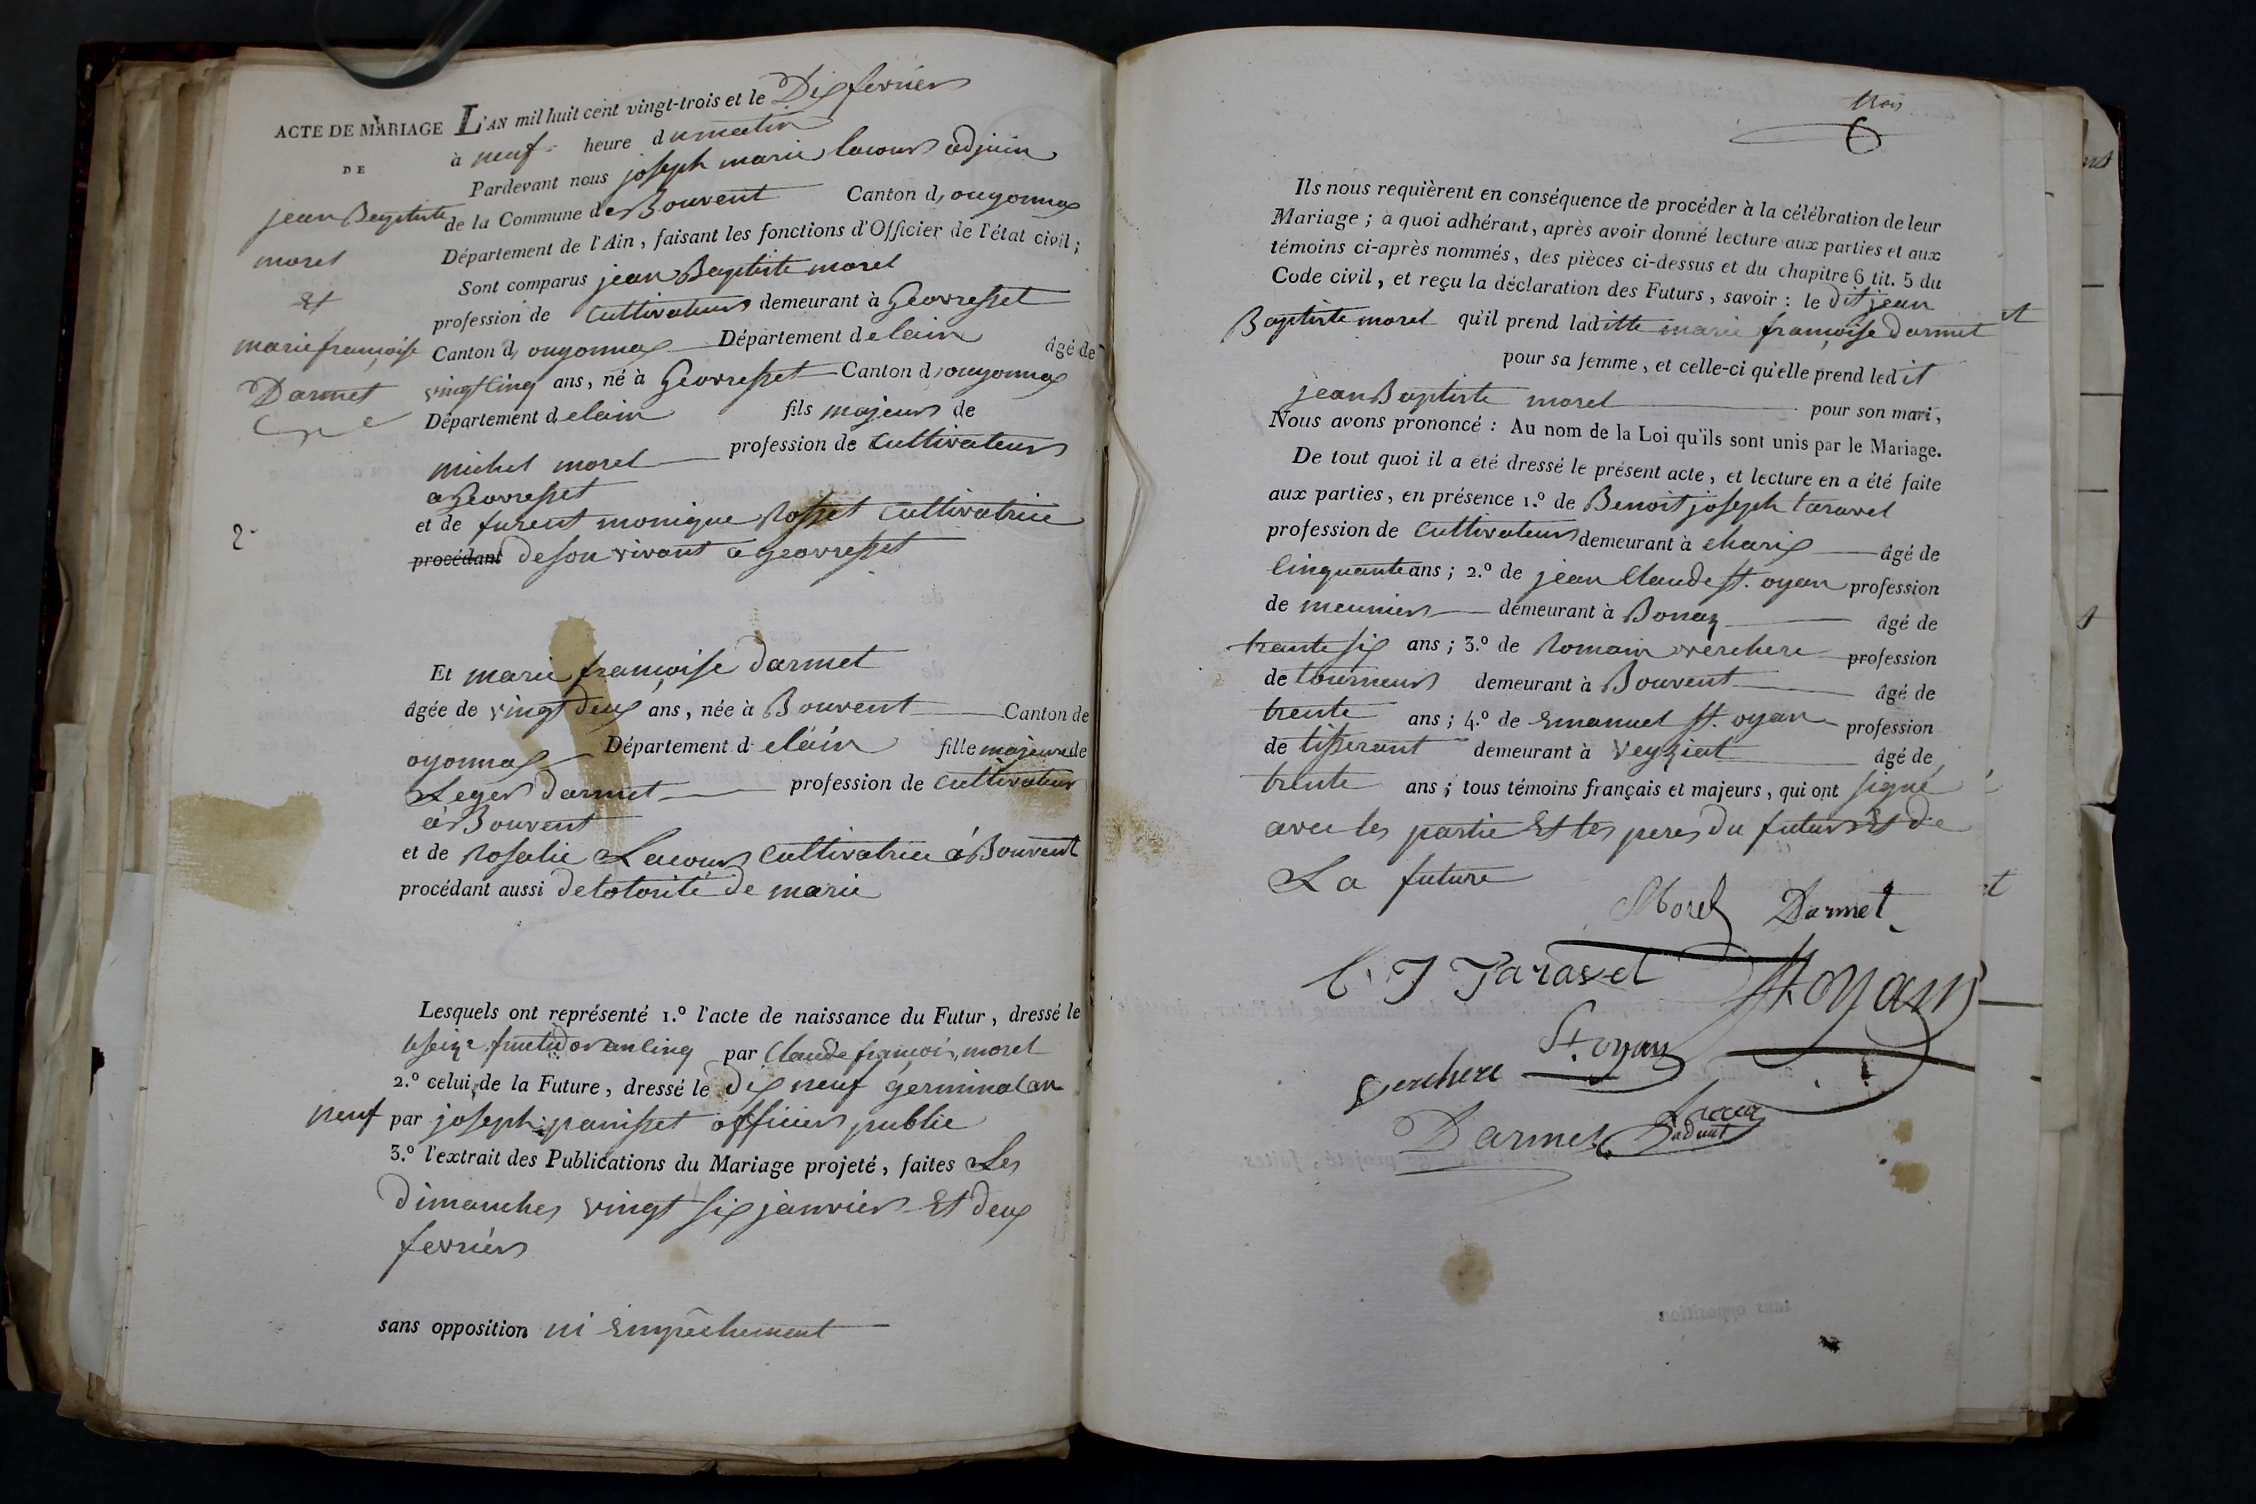 ACTE DE MARIAGE
DE
jean Baptiste
morel
Et
marie françoise
Darmet
2.
L'AN mil huit cent vingt-trois et le Dix fevrier
à neuf heure du matin
Pardevant nous joseph marie lacour adjoin
de la Commune de Bouvent Canton d, ouyonnax
Département de l'Ain, faisant les fonctions d'Officier de l'état civil;
Sont comparus jean Baptiste morel
profession de Cultivateur demeurant à Geovresset
Canton d, ouyonnax Département de lain âgé de
vingt Cinq ans, né à Geovresset Canton d, ouyonnax
Département de lain fils majeur de
michel morel profession de Cultivateur
a Geovresset
et de furent monique Rosset Cultivatrice
procédant de son vivant a geovresset
Et marie françoise darmet
âgée de vingt deux ans, née à Bouvent Canton de
oyonnax Département d elain fille majeure de
Leger darmet profession de Cultivateur
à Bouvent
et de Rosalie Lacour Cultivatrice à Bouvent
procédant aussi de lotorité de marie
Lesquels ont représenté 1.º l'acte de naissance du Futur, dressé le
le seize fructidor an cinq par Claude françois morel
2.º celui de la Future, dressé le dix neuf germinal an
neuf par joseph panisset officier public
3.º l'extrait des Publications du Mariage projeté, faites Les
dimanches vingt six janvier Et deux
fevrier
sans opposition ni Empêchement
trois
Ils nous requièrent en conséquence de procéder à la célébration de leur
Mariage; à quoi adhérant, après avoir donné lecture aux parties et aux
témoins ci-après nommés, des pièces ci-dessus et du chapitre 6 tit. 5 du
Code civil, et reçu la déclaration des Futurs, savoir : le dit jean
Baptiste morel qu'il prend laditte marie françoise darmet
pour sa femme, et celle-ci qu'elle prend ledit
jean Baptiste morel pour son mari,
Nous avons prononcé : Au nom de la Loi qu'ils sont unis par le Mariage.
De tout quoi il a été dressé le présent acte, et lecture en a été faite
aux parties, en présence 1.º de Benoit joseph taravel
profession de Cultivateur demeurant à charix âgé de
Cinquante ans; 2.º de jean Claude St. oyan profession
de meunier demeurant à Bonaz âgé de
trente six ans; 3.º de Romain verchere profession
de tourneur demeurant à Bouvent âgé de
trente ans; 4.º de Emanuel St. oyan profession
de tisserant demeurant à Veyziat âgé de
trente ans; tous témoins français et majeurs, qui ont signé
avec les partie Et les peres du futur Et de
La future
Morel Darmet
B. J Taravel St oyan
St. oyan
verchere
Darmet Lacour
adjoint